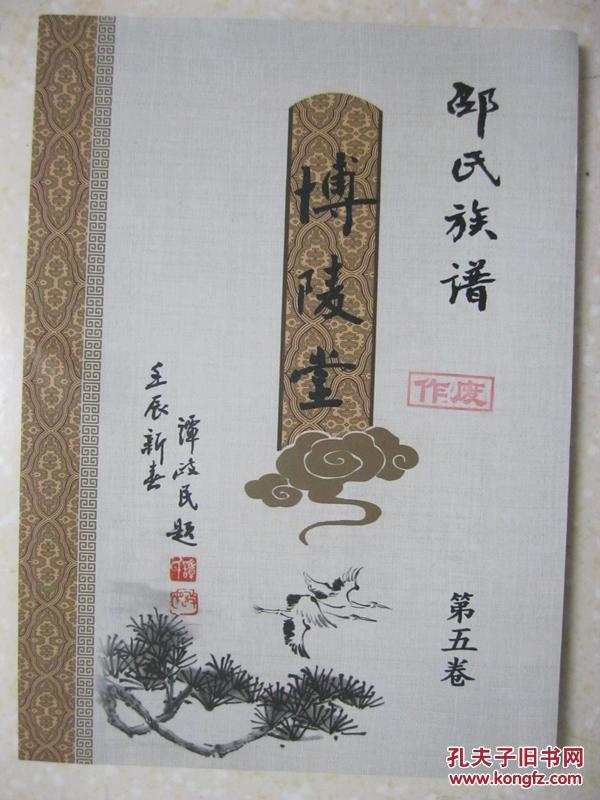 邵氏族谱
博陵堂
作废
壬辰新春
谭政民题
第五卷
孔夫子旧书网
www.kongfz.com